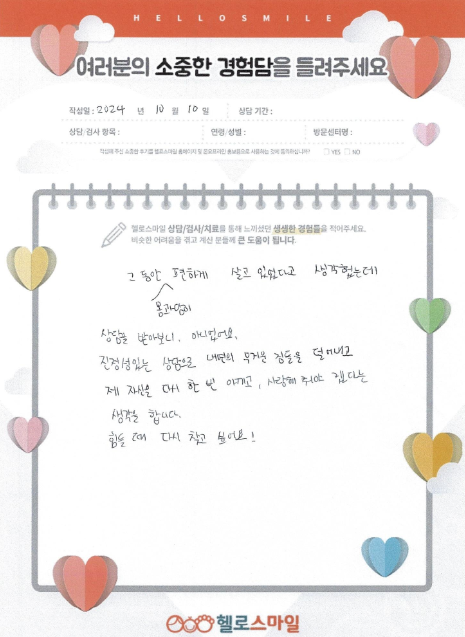 HELLOSMILE
여러분의 소중한 경험담을 들려주세요
작성일 : 2024 년 10 월 10 일 상담 기간 :
상담/검사 항목 : 연령/성별 : 방문센터명 :
작성해 주신 소중한 후기를 헬로스마일 홈페이지 및 온오프라인 홍보용으로 사용하는 것에 동의하십니까? □ YES □ NO
헬로스마일 상담/검사/치료를 통해 느끼셨던 생생한 경험들을 적어주세요.
비슷한 어려움을 겪고 계신 분들께 큰 도움이 됩니다.
그 동안 편하게 살고 있었다고 생각했는데
상담을 받아보니, 아니었어요.
진정성있는 상담으로 내면의 무거운 짐들을 덜어내고
제 자신을 다시 한 번 아끼고, 사랑해 주어야 겠다는
생각을 합니다.
힘들 때 다시 찾고 싶어요!
헬로스마일